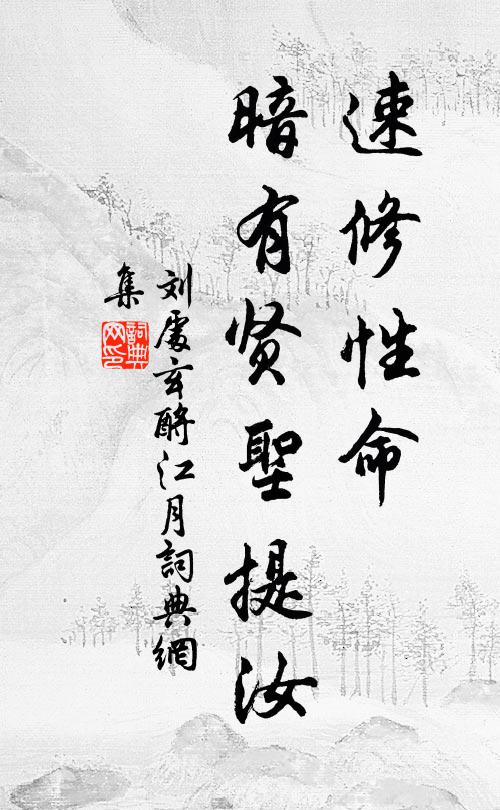 速修性命
暗有贤聖提汝
刘處玄酹江月詞典網
集
詞典
网印